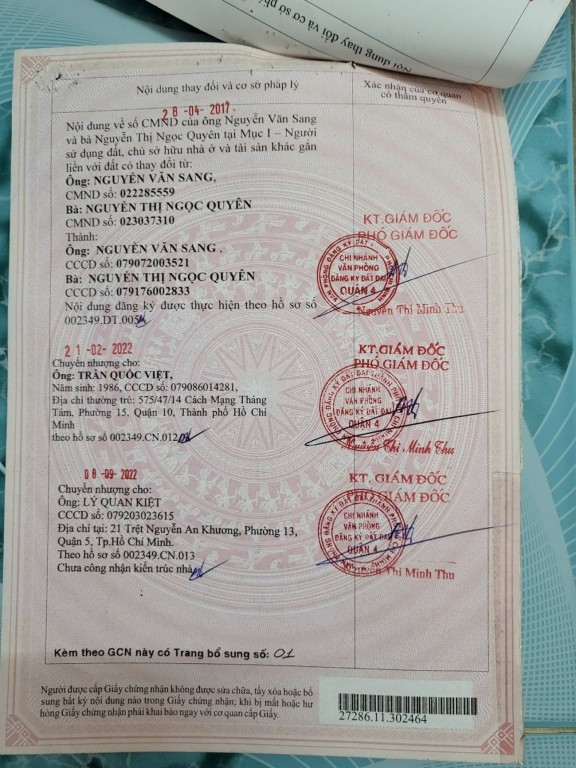 Nội dung thay đổi và cơ sở
Nội dung thay đổi và cơ sở pháp lý
Xác nhận của cơ quan
có thẩm quyền
28-04-2017
Nội dung về số CMND của ông Nguyễn Văn Sang
và bà Nguyễn Thị Ngọc Quyên tại Mục I – Người
sử dụng đất, chủ sở hữu nhà ở và tài sản khác gắn
liền với đất có thay đổi từ:
Ông: NGUYỄN VĂN SANG,
CMND số: 022285559
Bà: NGUYỄN THỊ NGỌC QUYÊN
CMND số: 023037310
Thành:
Ông: NGUYỄN VĂN SANG,
CCCD số: 079072003521
Bà: NGUYỄN THỊ NGỌC QUYÊN
CCCD số: 079176002833
Nội dung đăng ký được thực hiện theo hồ sơ số
002349.DT.005
KT.GIÁM ĐỐC
PHÓ GIÁM ĐỐC
CHI NHÁNH
VĂN PHÒNG
ĐĂNG KÝ ĐẤT ĐAI
QUẬN 4
Nguyễn Thị Minh Thu
21-02-2022
Chuyển nhượng cho:
Ông: TRẦN QUỐC VIỆT,
Năm sinh: 1986, CCCD số: 079086014281,
Địa chỉ thường trú: 575/47/14 Cách Mạng Tháng
Tám, Phường 15, Quận 10, Thành phố Hồ Chí
Minh
theo hồ sơ số 002349.CN.012
KT.GIÁM ĐỐC
PHÓ GIÁM ĐỐC
CHI NHÁNH
VĂN PHÒNG
ĐĂNG KÝ ĐẤT ĐAI
QUẬN 4
Nguyễn Thị Minh Thu
08-09-2022
Chuyển nhượng cho:
Ông: LÝ QUAN KIỆT,
CCCD số: 079203023615
Địa chỉ tại: 21 Trệt Nguyễn An Khương, Phường 13,
Quận 5, Tp.Hồ Chí Minh.
Theo hồ sơ số 002349.CN.013
Chưa công nhận kiến trúc nhà
KT. GIÁM ĐỐC
PHÓ GIÁM ĐỐC
CHI NHÁNH
VĂN PHÒNG
ĐĂNG KÝ ĐẤT ĐAI
QUẬN 4
Nguyễn Thị Minh Thu
Kèm theo GCN này có Trang bổ sung số: 01
Người được cấp Giấy chứng nhận không được sửa chữa, tẩy xóa hoặc bổ
sung bất kỳ nội dung nào trong Giấy chứng nhận; khi bị mất hoặc hư
hỏng Giấy chứng nhận phải khai báo ngay với cơ quan cấp Giấy.
27286.11.302464